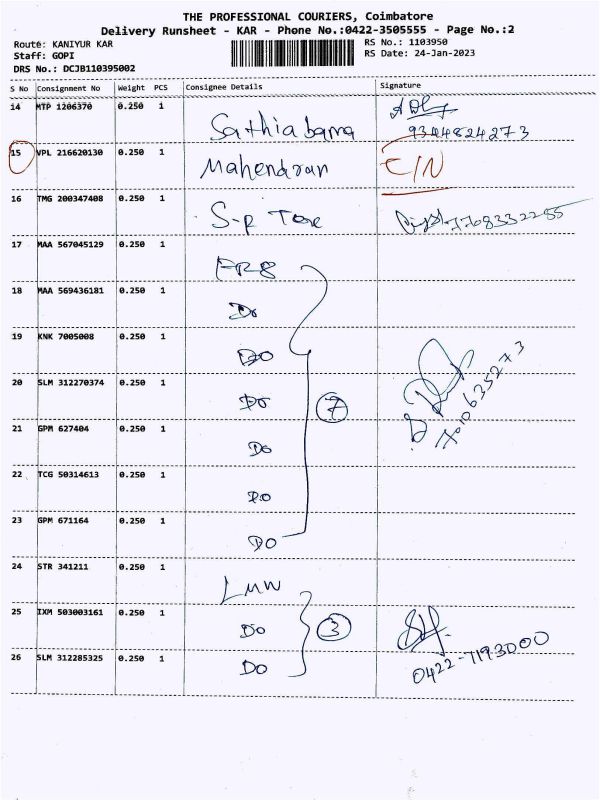 THE PROFESSIONAL COURIERS, Coimbatore
Delivery Runsheet - KAR - Phone No.:0422-3505555 - Page No.:2
Route: KANIYUR KAR
RS No.: 1103950
Staff: GOPI
RS Date: 24-Jan-2023
DRS No.: DCJB110395002
S No Consignment No Weight PCS Consignee Details Signature
14 MTP 1206370 0.250 1
Sathiabama 9344824273
15 VPL 216620130 0.250 1
Mahendran C/N
16 TMG 200347408 0.250 1
S-P Tex 7768332285
17 MAA 567045129 0.250 1
18 MAA 569436181 0.250 1
Do
19 KNK 7005008 0.250 1
Do
20 SLM 312270374 0.250 1
Do 7
21 GPM 627404 0.250 1
Do
22 TCG 50314613 0.250 1
Do
23 GPM 671164 0.250 1
Do
24 STR 341211 0.250 1
25 IXM 503003161 0.250 1
Do 3
26 SLM 312285325 0.250 1
Do 0422-7193000